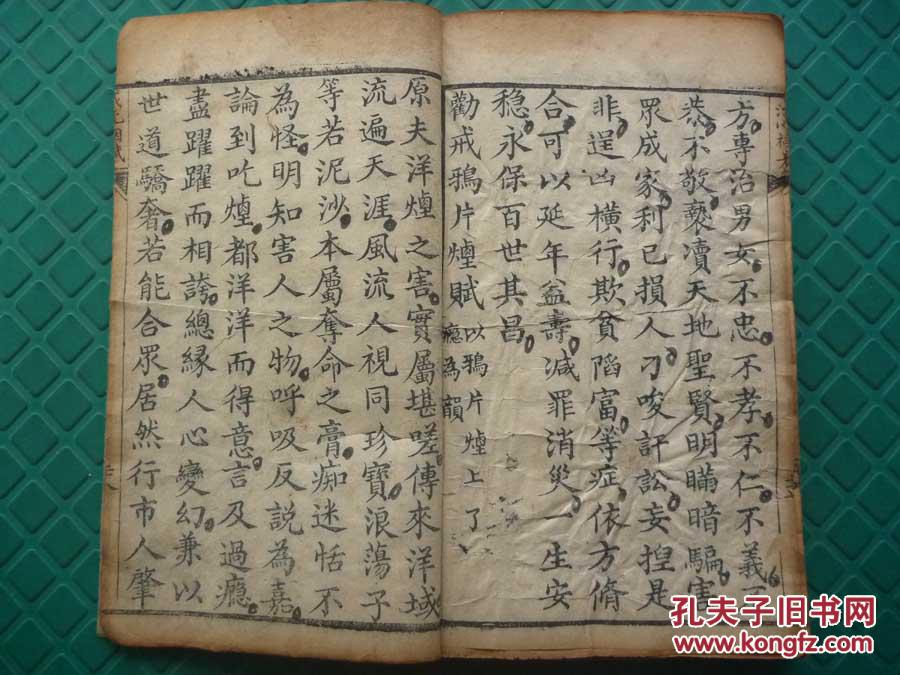 方專治男女不忠不孝不仁不義不
恭不敬褻瀆天地聖賢明瞞暗騙害
眾成家利己損人刁唆訐訟妄揑是
非逞凶橫行欺貧謟富等症依方脩
合可以延年益壽減罪消災一生安
稳永保百世其昌
勸戒鴉片煙賦以鴉片煙上了
癮為韻
原夫洋煙之害實屬堪嗟傳來洋域
流遍天涯風流人視同珍寶浪蕩子
等若泥沙本屬奪命之膏痴迷恬不
為怪明知害人之物呼吸反説為嘉
論到吃煙都洋洋而得意言及過癮
盡躍躍而相誇總緣人心變幻兼以
世道驕奢若能合眾居然行市人肇
孔夫子旧书网
www.kongfz.com